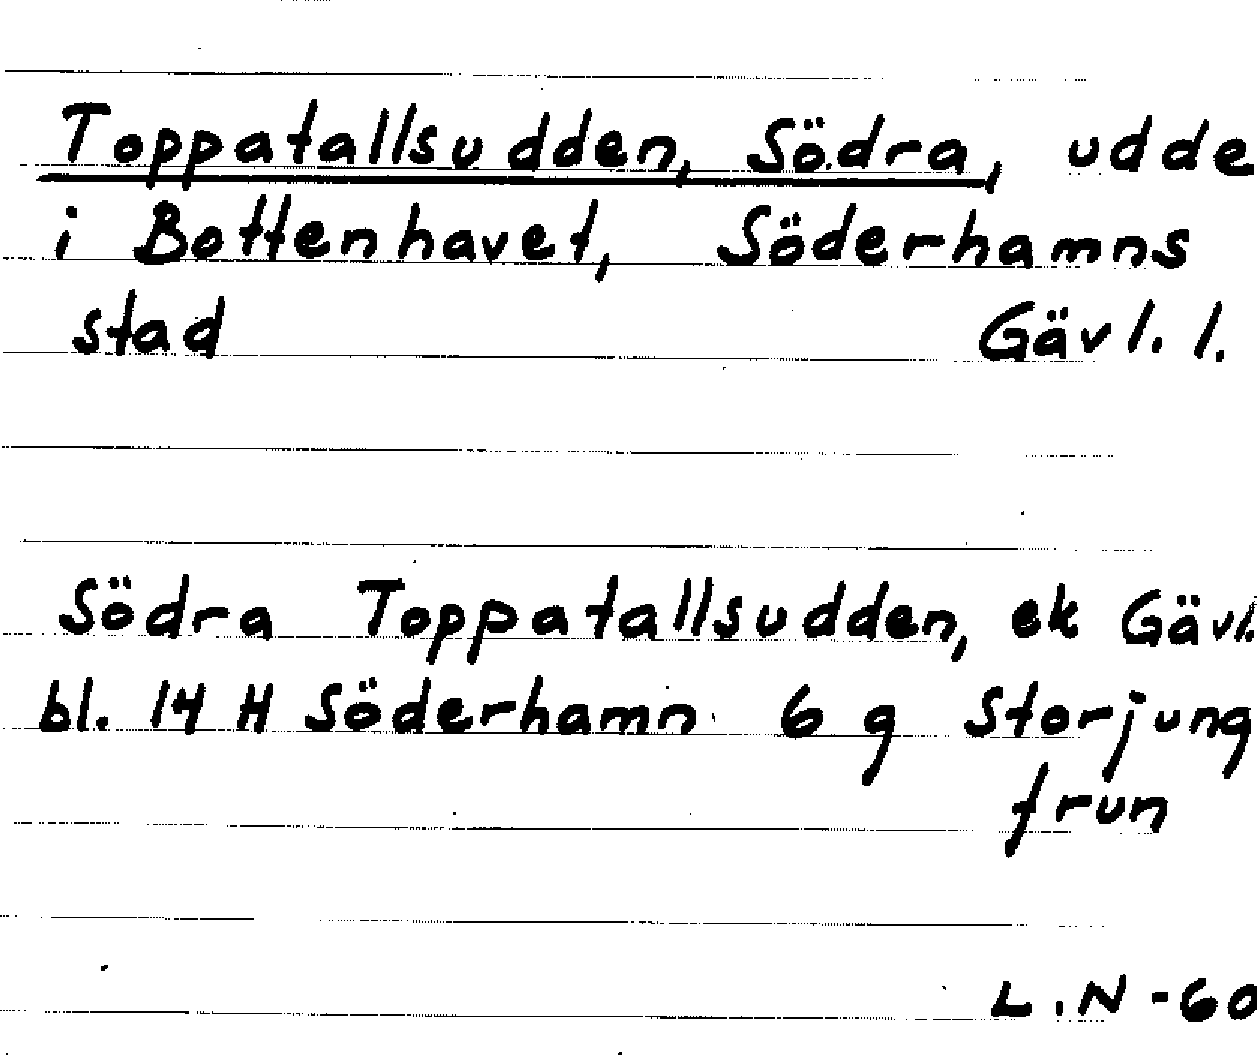 Toppatallsudden, Södra, udde
i Bottenhavet, Söderhamns
stad Gävl. l.
Södra Toppatallsudden, ek Gävl.
bl. 14 H Söderhamn 6 g Storjung
frun
L.N -60